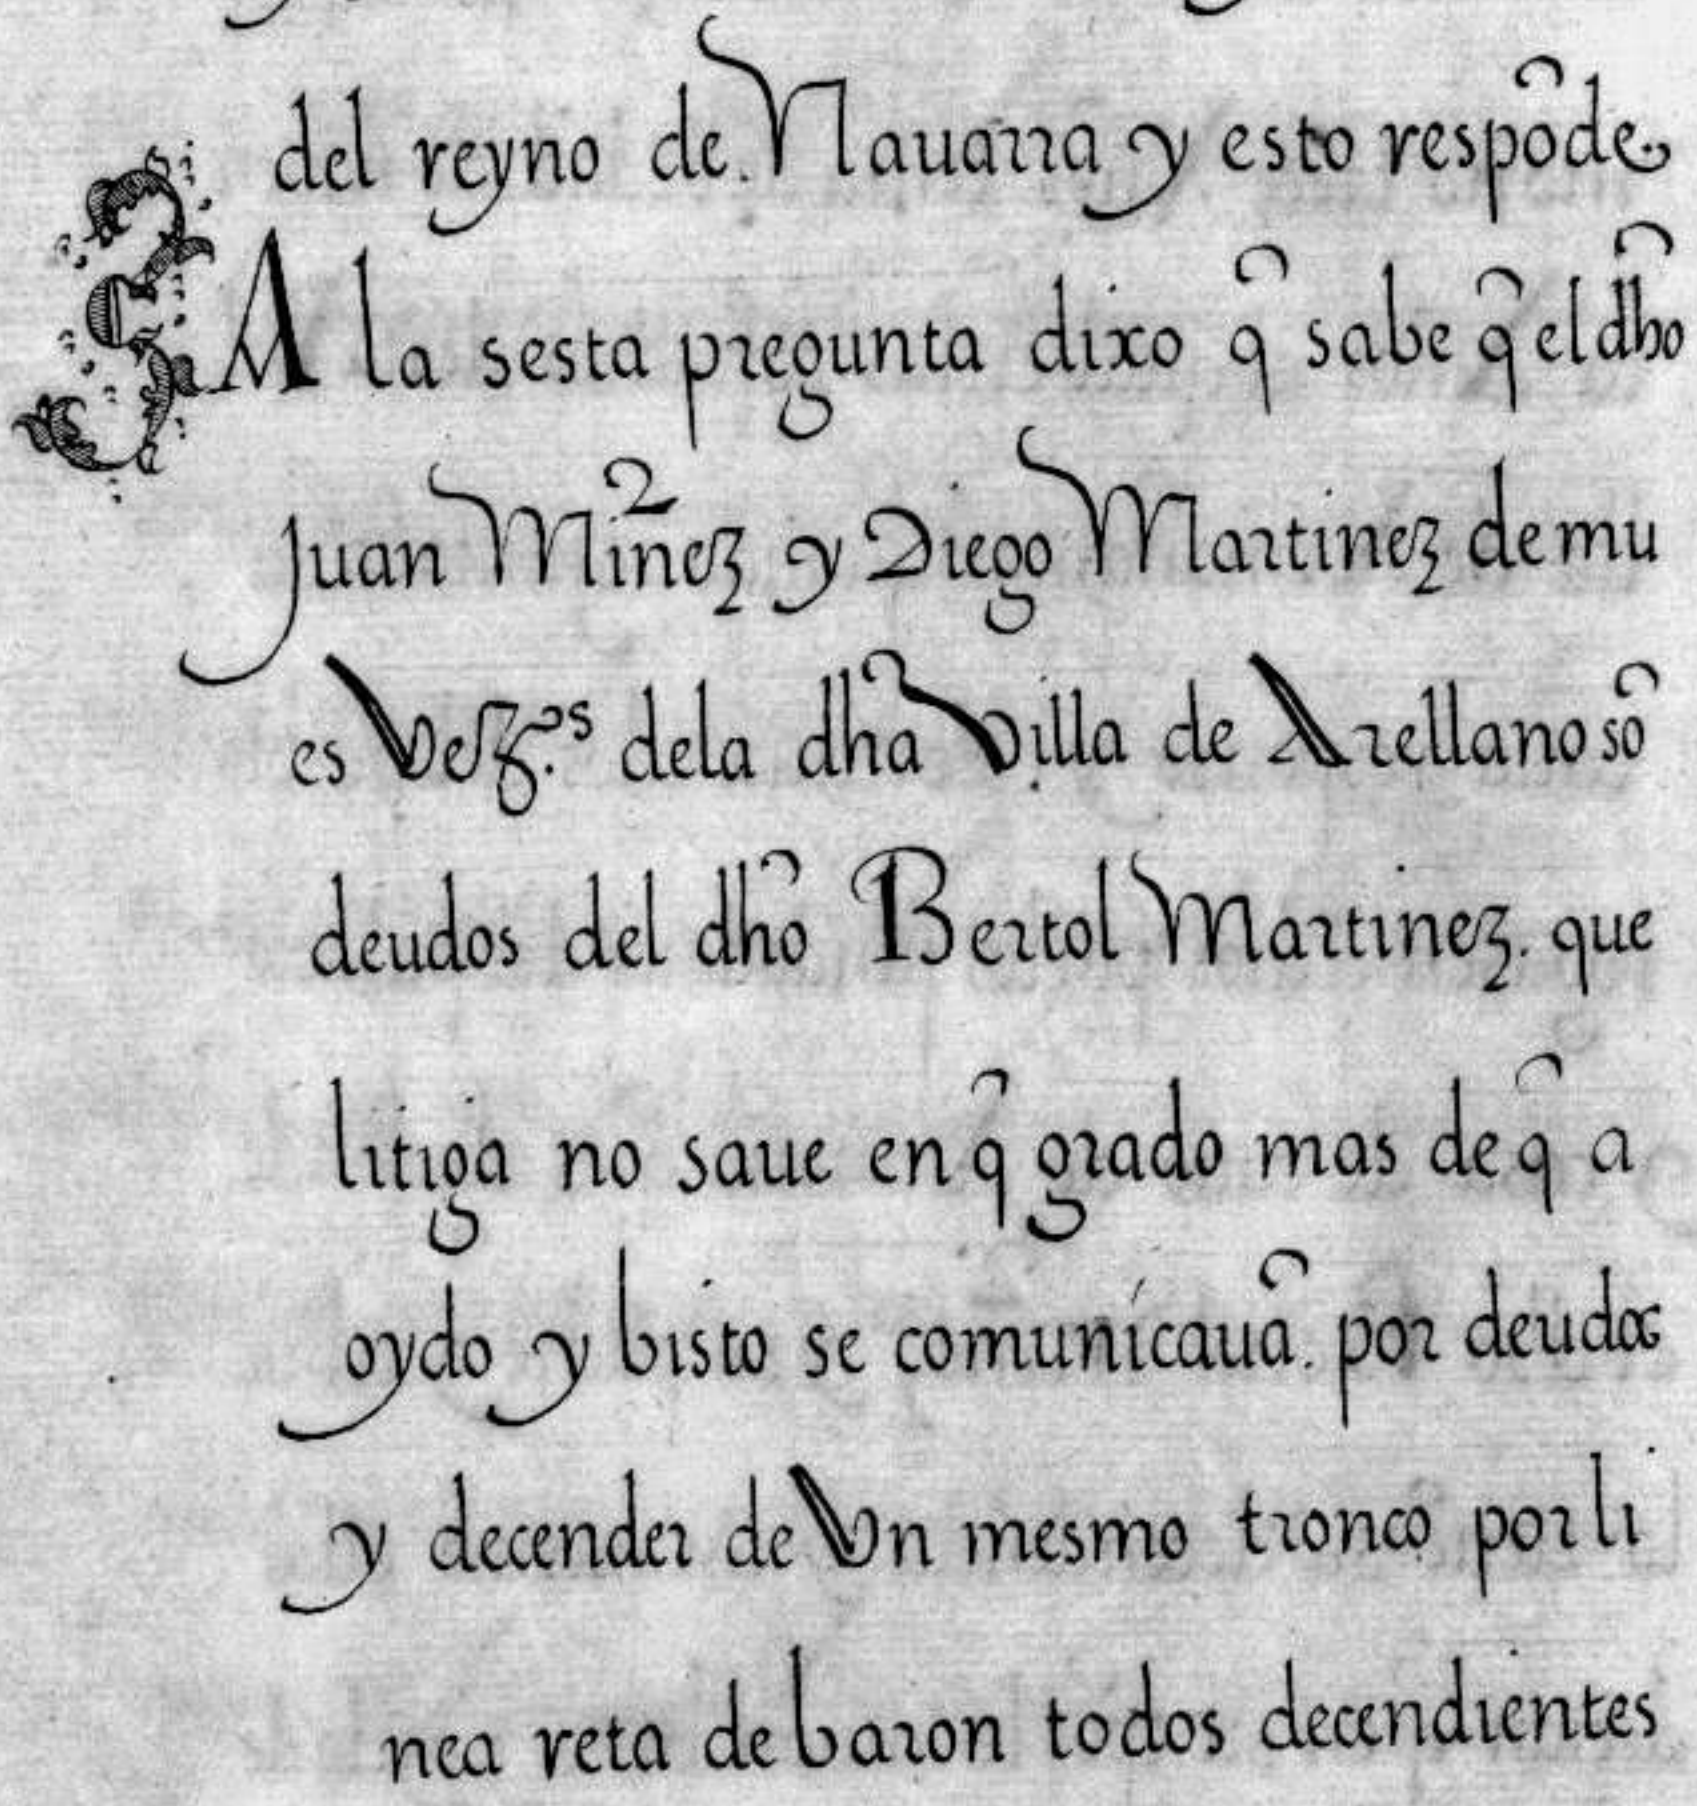 del reyno de. Nauarra y esto respõde
A la sesta pregunta dixo q̃ sabe q̃ el dh̃o
Juan Mr̃inez y Diego Martinez de mu
es Vezos dela dh̃a Villa de Arellano sõ
deudos del dh̃o Bertol Martinez. que
litiga no saue en q̃ grado mas de q̃ a
oydo y bisto se comunicauã. por deudos
y decender de Vn mesmo tronco por li
nea reta de baron todos decendientes